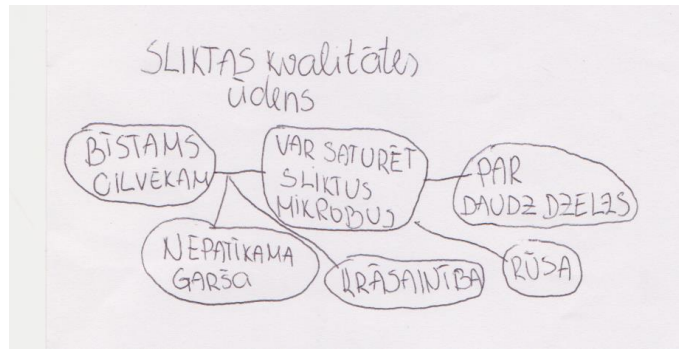 SLIKTAS kvalitātes
ūdens
BĪSTAMS
CILVĒKAM
VAR SATURĒT
SLIKTUS
MIKROBUS
PAR
DAUDZ DZELZS
NEPATĪKAMA
GARŠA
KRĀSAINĪBA
RŪSA